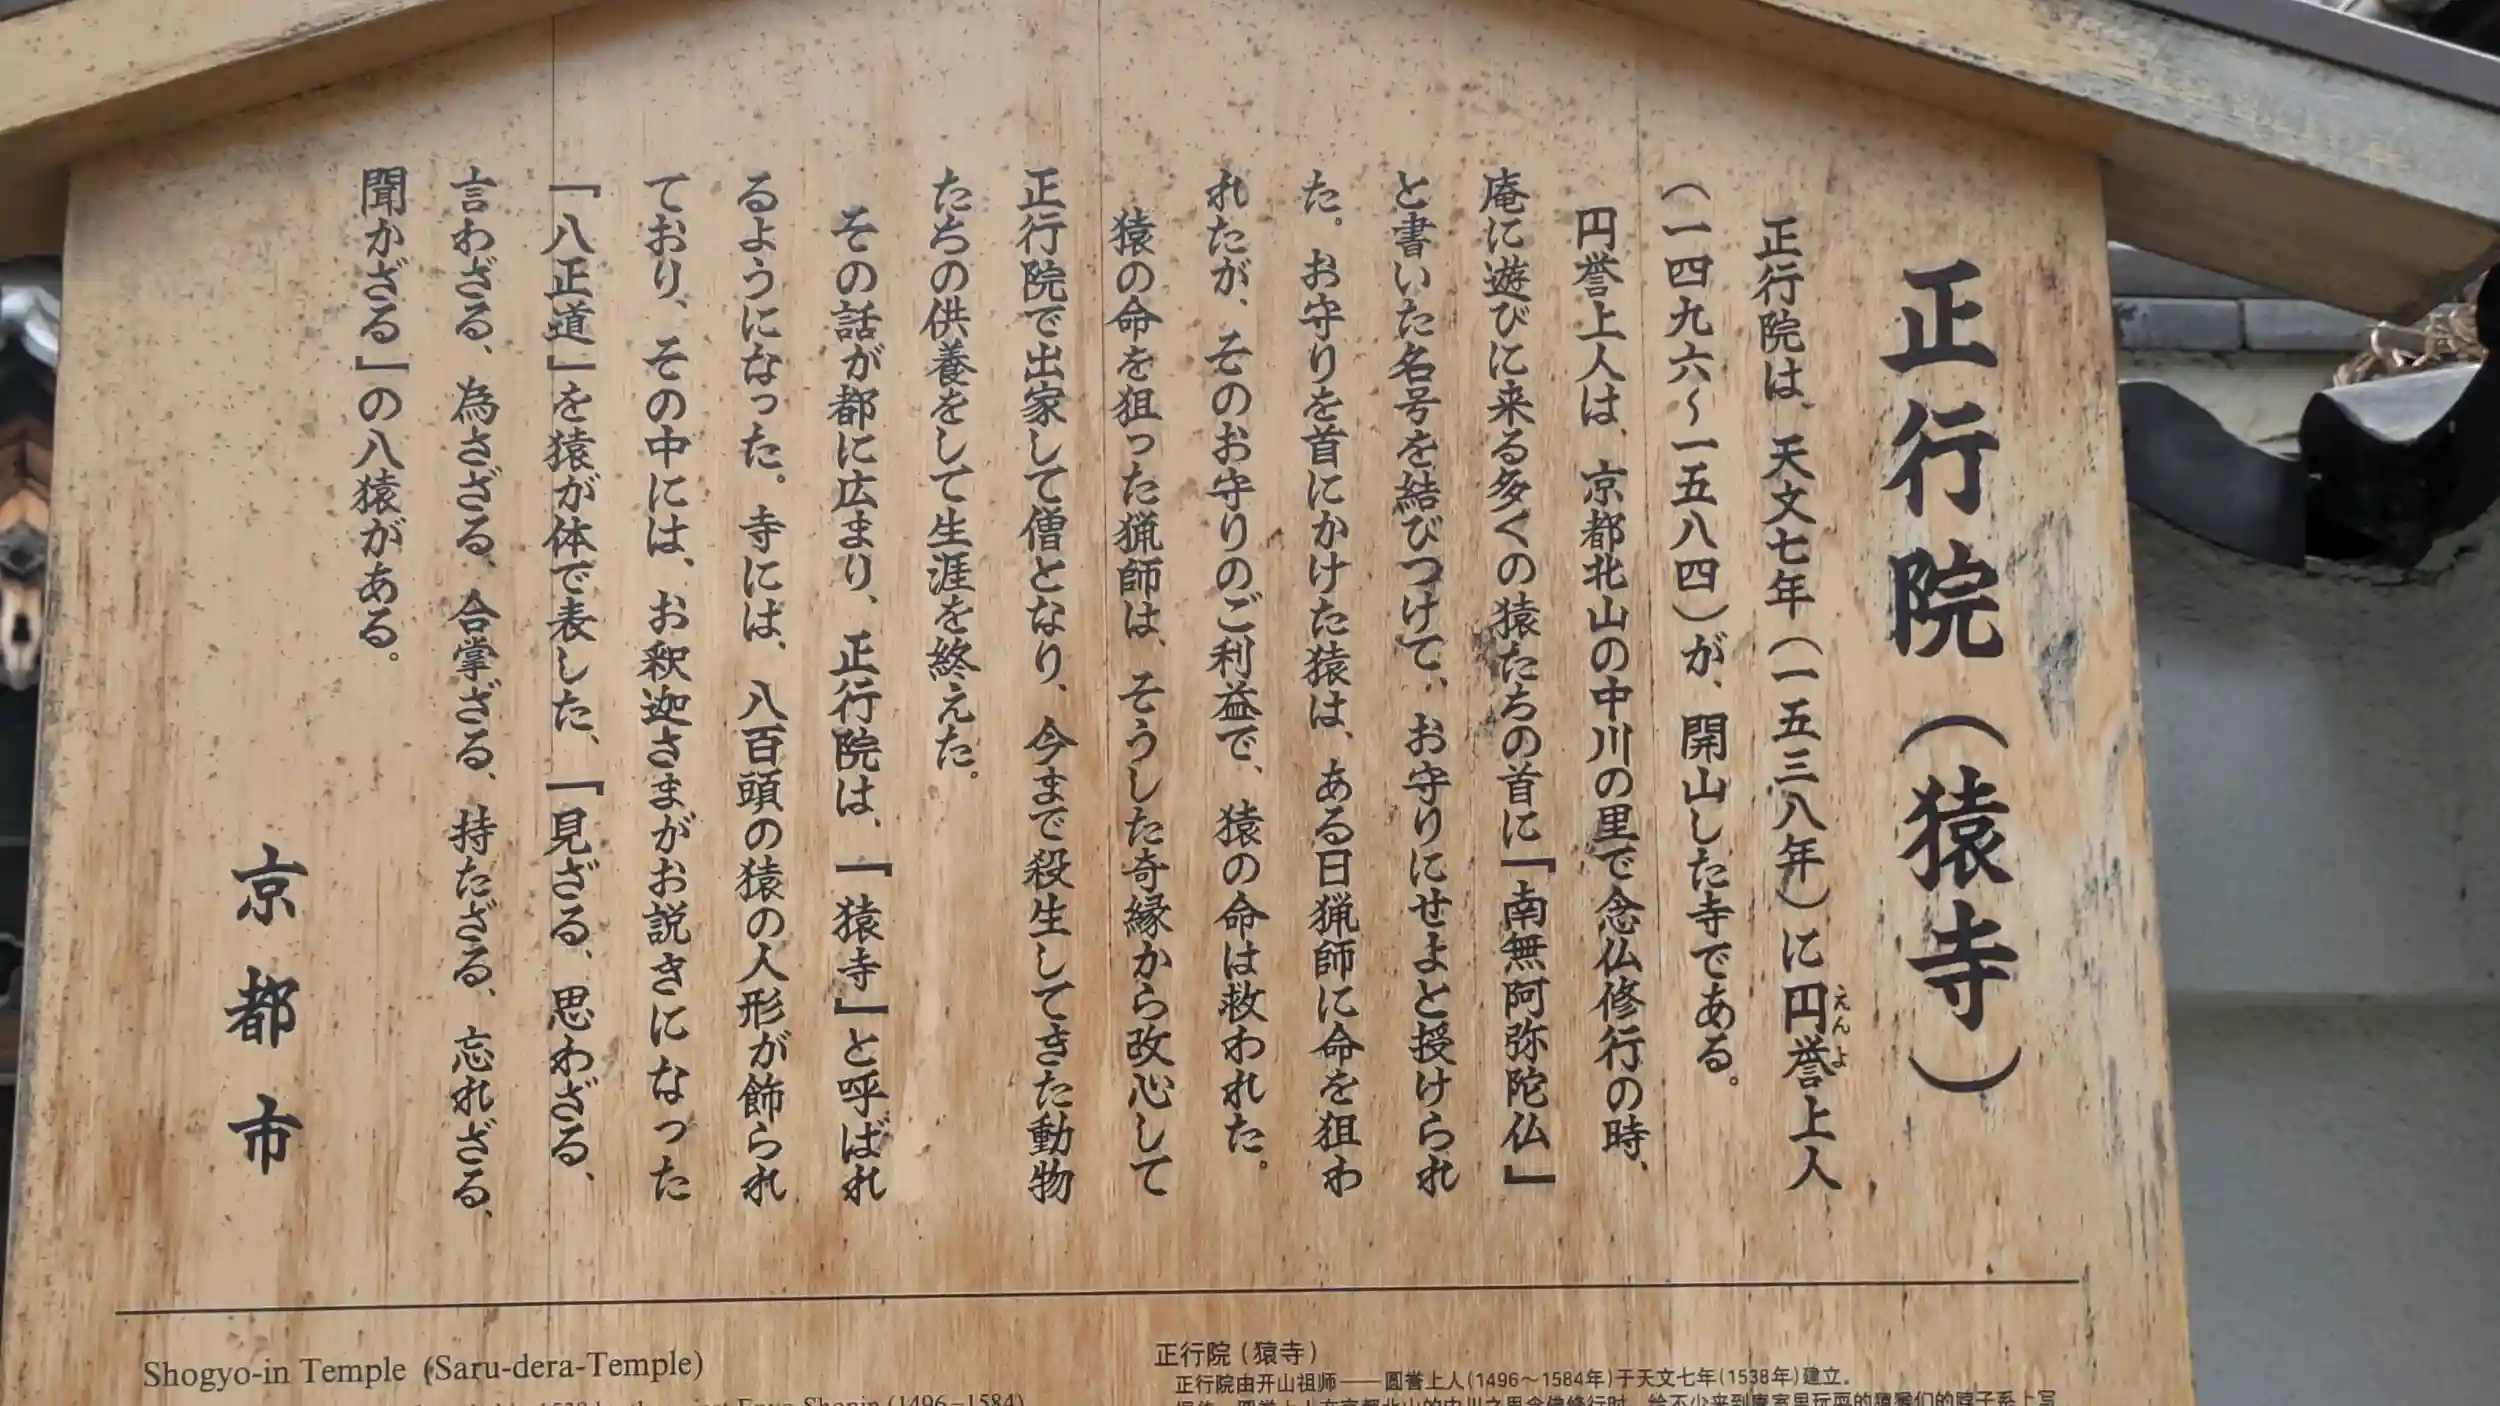 正行院（猿寺）
正行院は、天文七年（一五三八年）に円誉上人
えんよ
（一四九六～一五八四）が、開山した寺である。
円誉上人は、京都北山の中川の里で念仏修行の時、
庵に遊びに来る多くの猿たちの首に「南無阿弥陀仏」
と書いた名号を結びつけて、お守りにせよと授けられ
た。お守りを首にかけた猿は、ある日猟師に命を狙わ
れたが、そのお守りのご利益で、猿の命は救われた。
猿の命を狙った猟師は、そうした奇縁から改心して
正行院で出家して僧となり、今まで殺生してきた動物
たちの供養をして生涯を終えた。
その話が都に広まり、正行院は、「猿寺」と呼ばれ
るようになった。寺には、八百頭の猿の人形が飾られ
ており、その中には、お釈迦さまがお説きになった
「八正道」を猿が体で表した、「見ざる、思わざる、
言わざる、為さざる、合掌ざる、持たざる、忘れざる、
聞かざる」の八猿がある。
京都市
Shogyo-in Temple (Saru-dera-Temple)
Enyo Shonin (1496–1584)
正行院（猿寺）
正行院由开山祖师——圆誉上人(1496～1584年)于天文七年(1538年)建立。